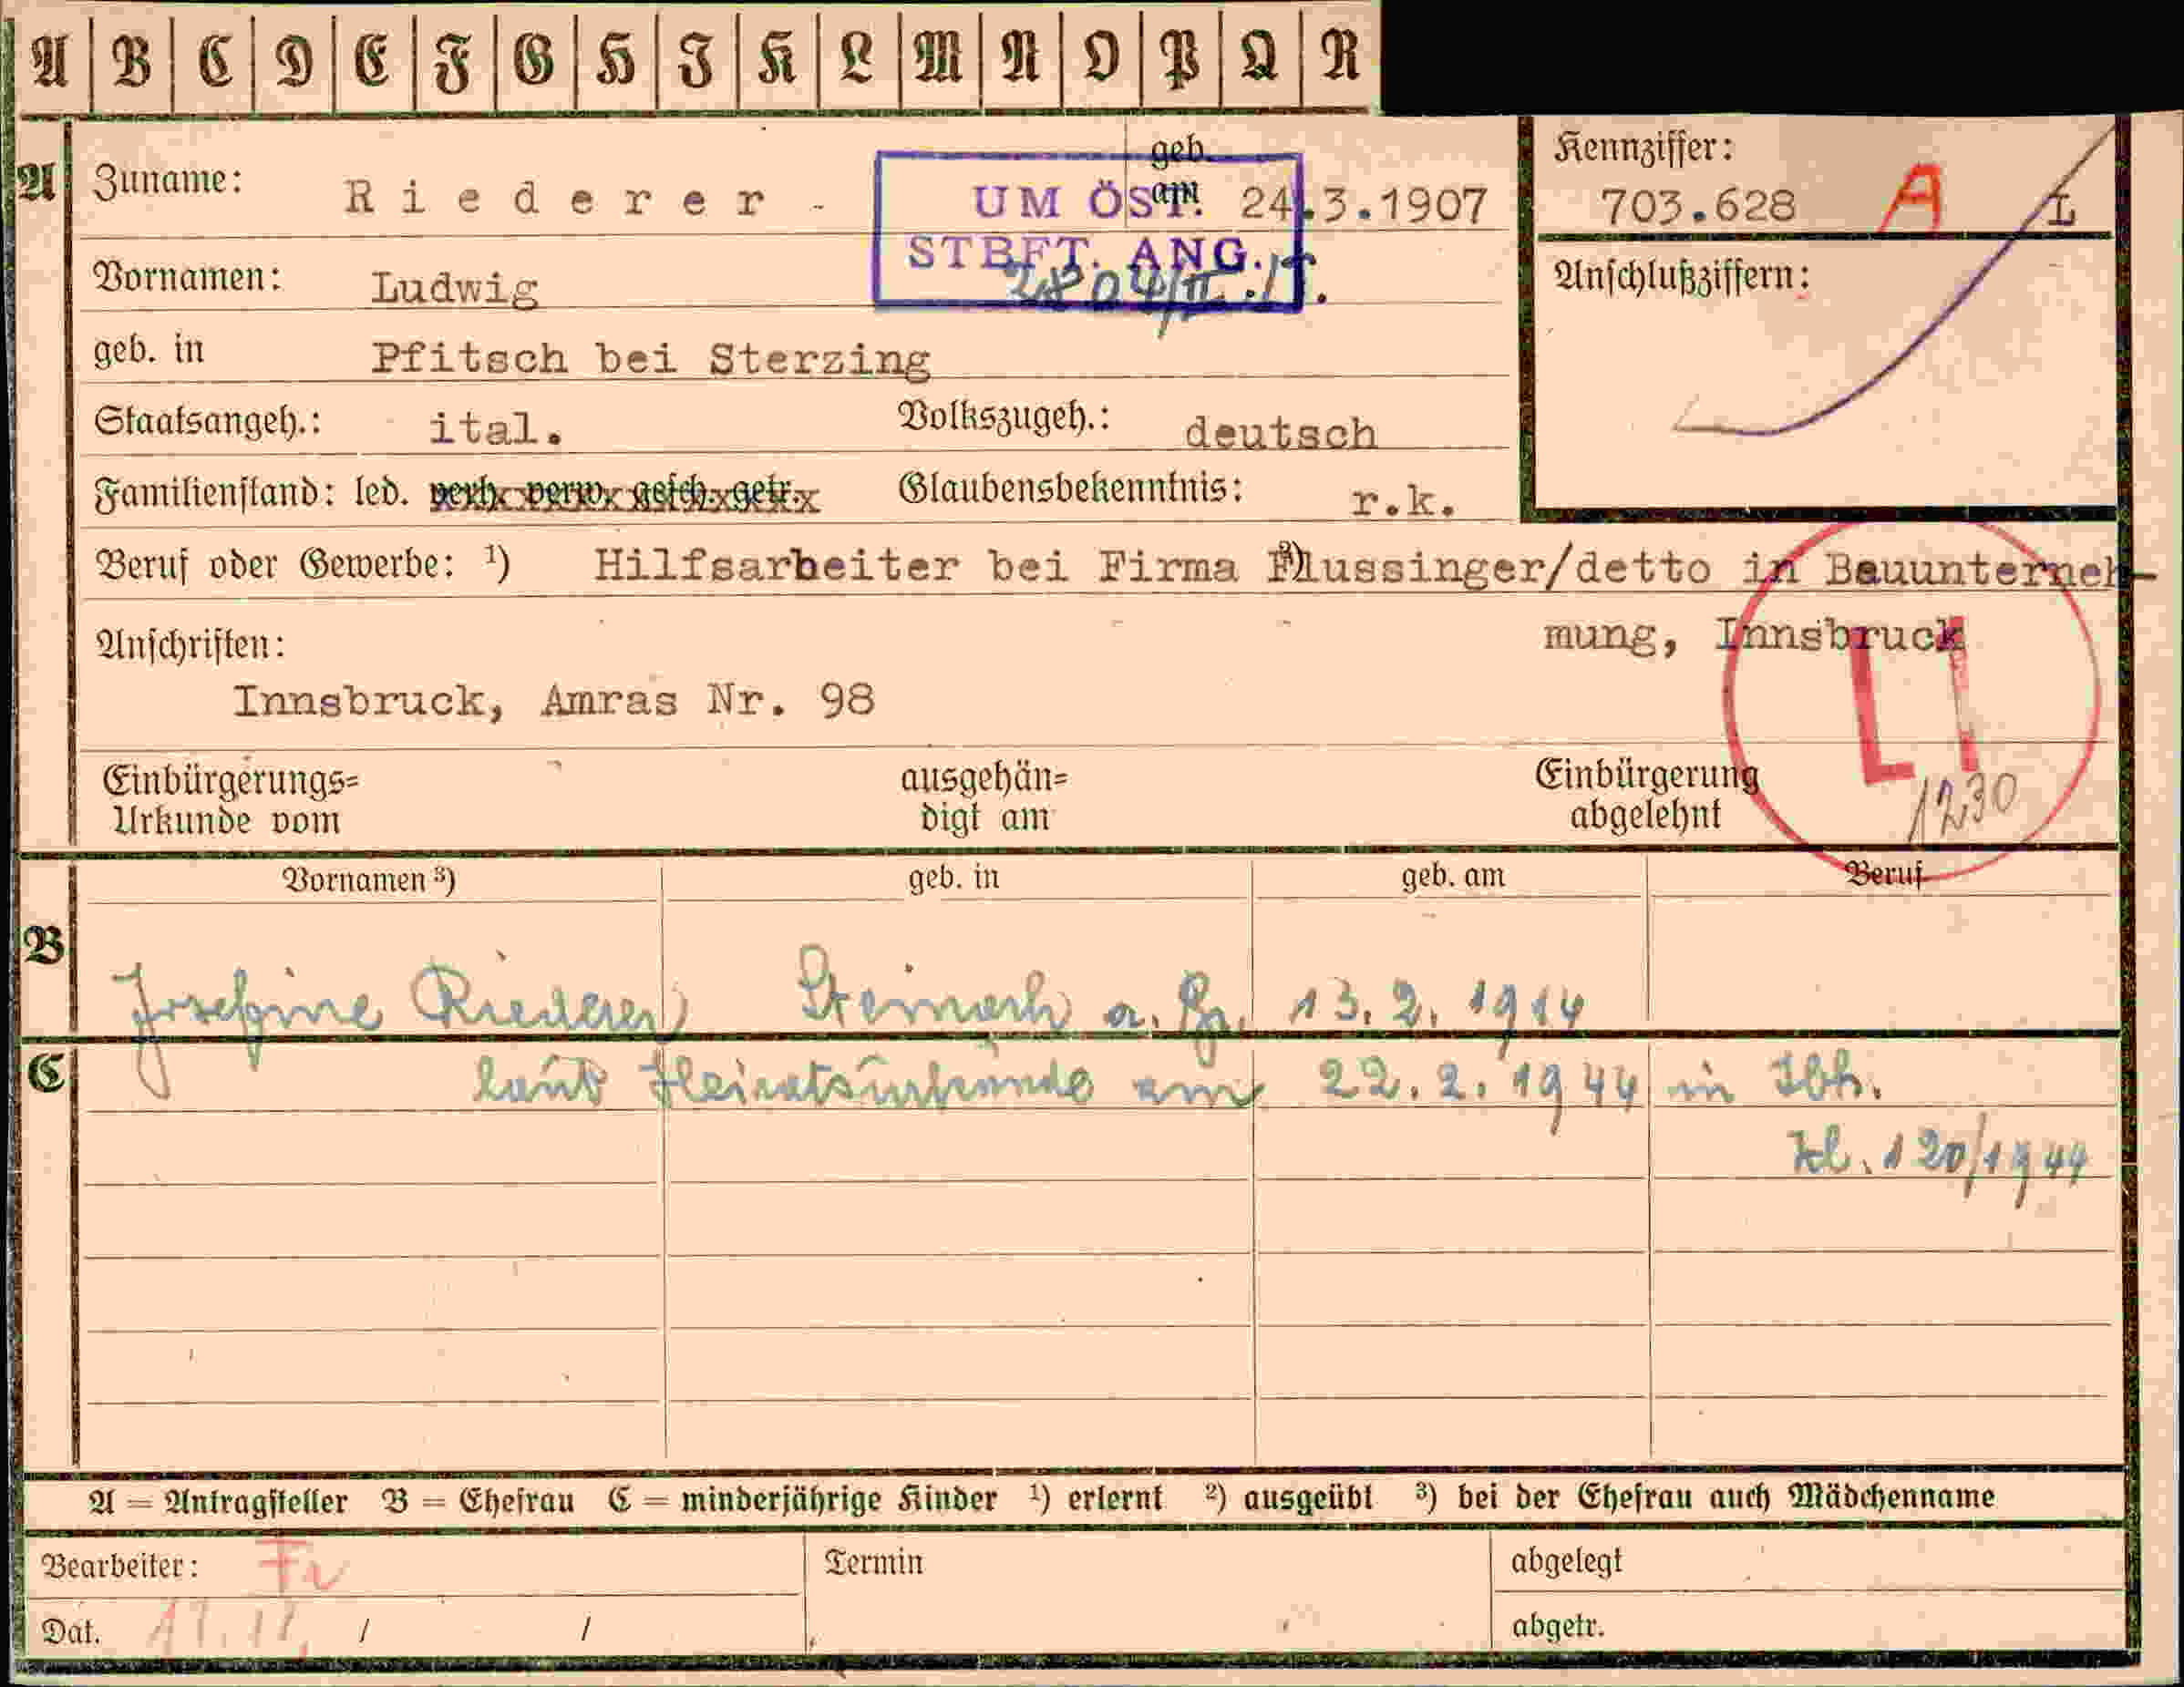 A B C D E F G H I K L M N O P Q R
A Zuname: Riederer - geb. am 24.3.1907
UM ÖST.
STBFT. ANG.
Kennziffer:
703.628 A L
Vornamen: Ludwig
Anschlußziffern:
geb. in Pfitsch bei Sterzing
Staatsangeh.: ital. Volkszugeh.: deutsch
Familienstand: led. verh. verw. gesch. getr. Glaubensbekenntnis: r.k.
Beruf oder Gewerbe: ¹) Hilfsarbeiter bei Firma ²) Plussinger/detto in Bauunterneh-
mung, Innsbruck
Anschriften:
Innsbruck, Amras Nr. 98
L1
Einbürgerungs= ausgehän= Einbürgerung
Urkunde vom digt am abgelehnt
1230
Vornamen ³) geb. in geb. am Beruf
B Josefine Riederer Steinach a. Br. 13.2.1914
C laut Heiratsurkunde am 22.2.1944 in Ibk.
Zl. 120/1944
A = Antragsteller B = Ehefrau C = minderjährige Kinder ¹) erlernt ²) ausgeübt ³) bei der Ehefrau auch Mädchenname
Bearbeiter: Fr Termin abgelegt
Dat. 11.11. / / abgetr.